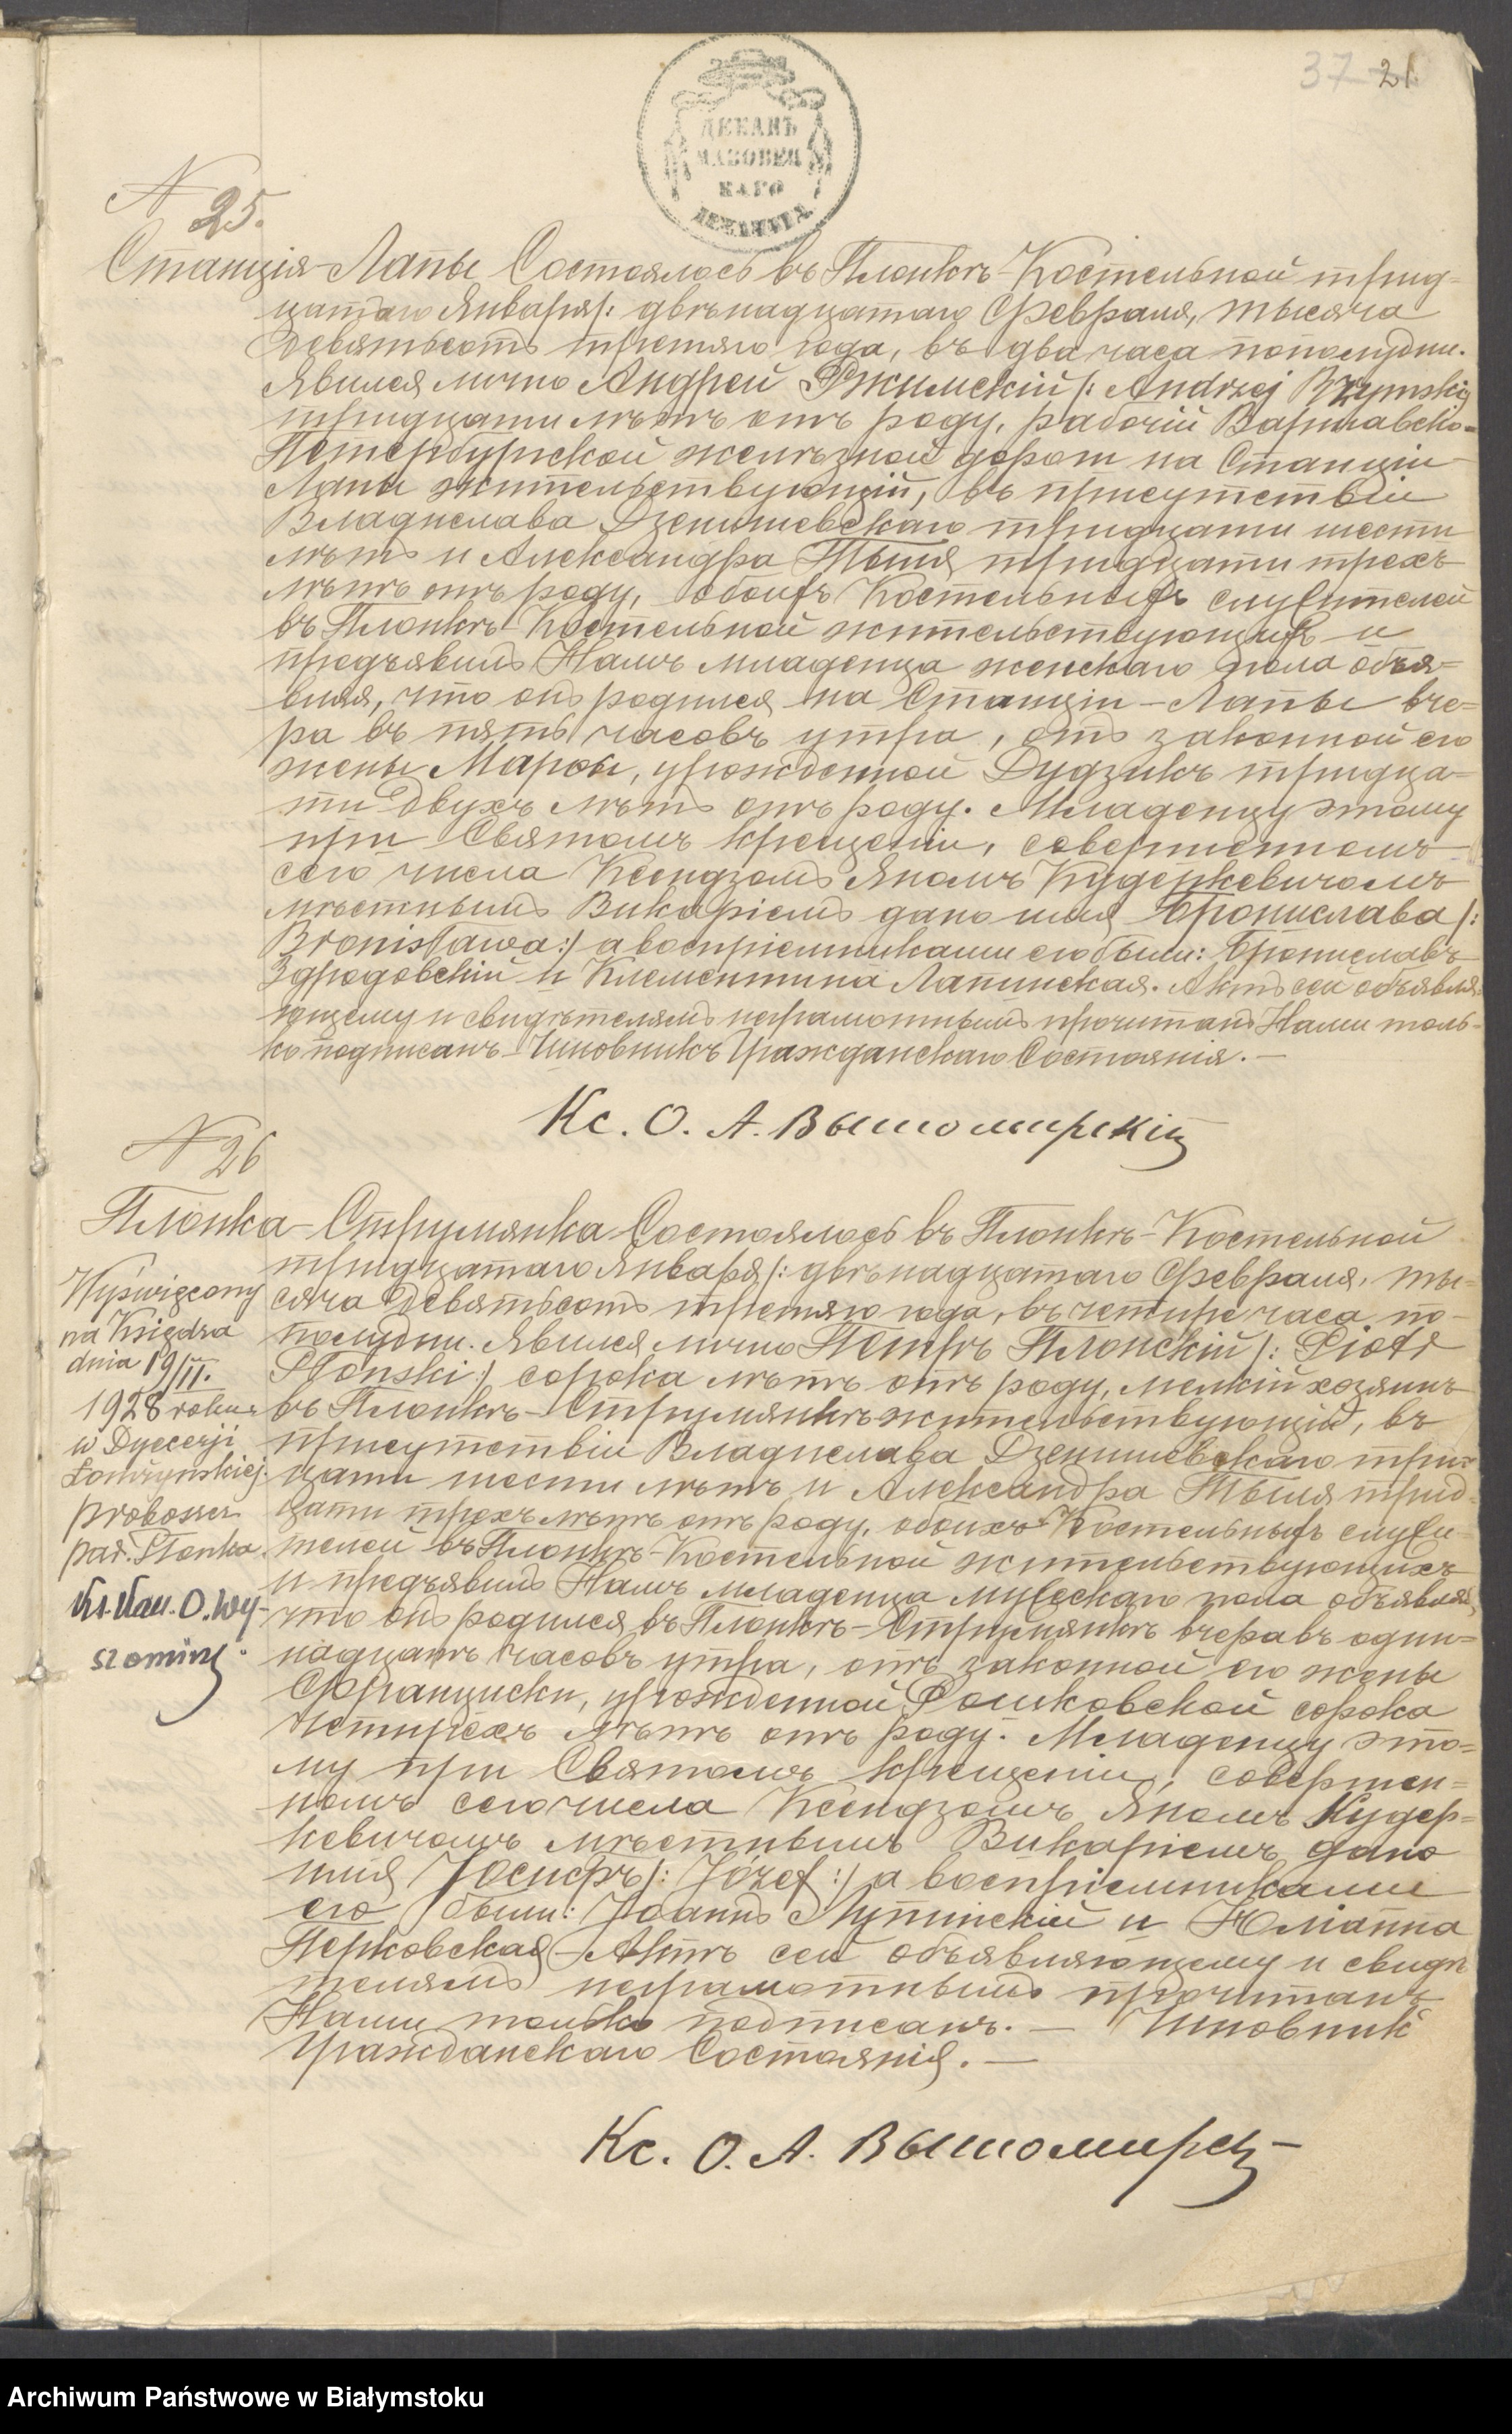 37 21
ДЕКАНЪ
МАЗОВЕЦ
КАГО
ДЕКАНАТА
N 25.
Станція-Лапы Состоялось въ Плонкѣ-Костельной трид-
цатаго Января /: двѣнадцатаго Февраля, тысяча
девятьсотъ третяго года, въ два часа пополудни.
Явился лично Андрей Ржимскій /: Andrzej Rzymski
тридцати лѣтъ отъ роду, рабочій Варшавско-
Петербургской желѣзной дороги на Станціи
Лапы жительствующій, въ присутствіи
Владислава Дзенишевскаго тридцати шести
лѣтъ и Александра Тыля тридцати трехъ
лѣтъ отъ роду, обоихъ Костельныхъ служителей
въ Плонкѣ-Костельной жительствующихъ и
предъявилъ Намъ младенца женскаго пола объя-
вляя, что онъ родился на Станціи-Лапы вче-
ра въ пять часовъ утра, отъ законной его
жены Марфы, урожденной Дудзикъ тридца-
ти двухъ лѣтъ отъ роду. Младенцу этому
при Святомъ крещеніи, совершенномъ
сего числа Ксендзомъ Яномъ Кудеркевичомъ
мѣстнымъ Викаріемъ дано имя Бронислава /:
Bronisława :/ а воспріемниками его были: Брониславъ
Здродовскій и Клементина Лапинская. Актъ сей объявля-
ющему и свидѣтелямъ неграмотнымъ прочитанъ Нами толь-
ко подписанъ. Чиновникъ Гражданскаго Состоянія. —
Кс. О. А. Вышомирскій
N 26
Плонка-Струмянка Состоялось въ Плонкѣ-Костельной
тридцатаго Января /: двѣнадцатаго Февраля, ты-
сяча девятьсотъ третяго года, въ четыре часа по-
полудни. Явился лично Петръ Плонскій /: Piotr
Płonski :/ сорока лѣтъ отъ роду, мелкій хозяинъ
въ Плонкѣ-Струмянкѣ жительствующій, въ
присутствіи Владислава Дзенишевскаго трид-
цати шести лѣтъ и Александра Тыля трид-
цати трехъ лѣтъ отъ роду, обоихъ Костельныхъ служи-
телей въ Плонкѣ-Костельной жительствующихъ
и предъявилъ Намъ младенца мужескаго пола объявляя,
что онъ родился въ Плонкѣ-Струмянкѣ вчера въ один-
надцать часовъ утра, отъ законной его жены
Францишки, урожденной Рошковской сорока
четырехъ лѣтъ отъ роду. Младенцу это-
му при Святомъ крещеніи, совершен-
номъ сего числа Ксендзомъ Яномъ Кудер-
кевичомъ мѣстнымъ Викаріемъ дано
имя Іосифъ /: Józef :/ а воспріемниками
его были: Іоаннъ Лупинскій и Юліанна
Перковская. Актъ сей объявляющему и свидѣ-
телямъ неграмотнымъ прочитанъ
Нами только подписанъ. — Чиновникъ
Гражданскаго Состоянія. —
Кс. О. А. Вышомирск
Wyświęcony
na Księdza
dnia 19/II.
1928 roku
w Dyecezji
Łomżynskiej.
proboszcz
par. Płonka
Ks. Kan. O. Wy-
szomirs
Archiwum Państwowe w Białymstoku